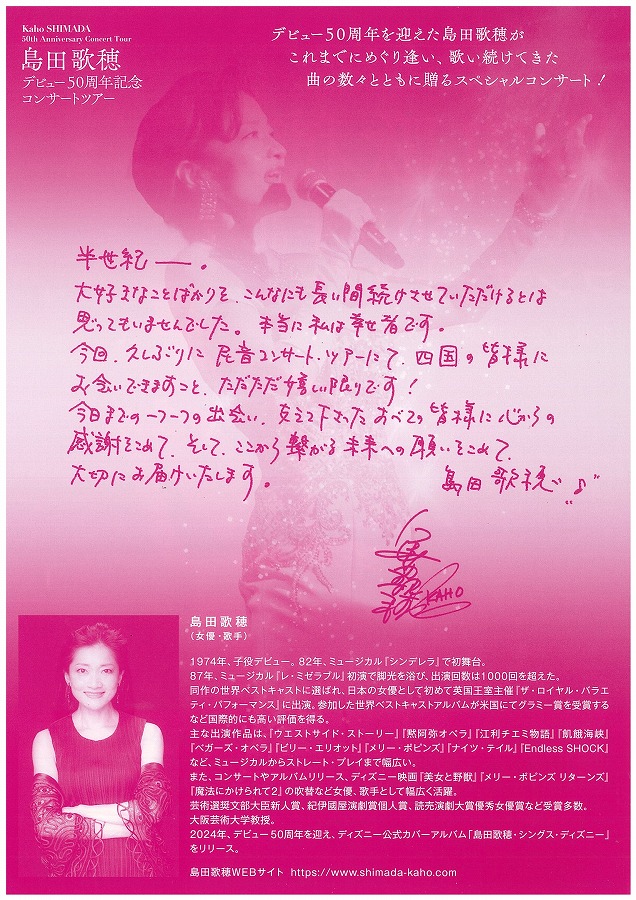 Kaho SHIMADA
50th Anniversary Concert Tour
島田歌穂
デビュー50周年記念
コンサートツアー
デビュー50周年を迎えた島田歌穂が
これまでにめぐり逢い、歌い続けてきた
曲の数々とともに贈るスペシャルコンサート！
半世紀――。
大好きなことばかりを、こんなにも長い間続けさせていただけるとは
思ってもいませんでした。本当に私は幸せ者です。
今回、久しぶりに民音コンサート・ツアーにて、四国の皆様に
お会いできますこと、ただただ嬉しい限りです！
今日までの一つ一つの出会い、支えて下さったすべての皆様に心からの
感謝をこめて、そして、ここから繋がる未来への願いをこめて、
大切にお届けいたします。
島田歌穂
KAHO
島田歌穂
（女優・歌手）
1974年、子役デビュー。82年、ミュージカル『シンデレラ』で初舞台。
87年、ミュージカル『レ・ミゼラブル』初演で脚光を浴び、出演回数は1000回を超えた。
同作の世界ベストキャストに選ばれ、日本の女優として初めて英国王室主催『ザ・ロイヤル・バラエ
ティ・パフォーマンス』に出演。参加した世界ベストキャストアルバムが米国にてグラミー賞を受賞する
など国際的にも高い評価を得る。
主な出演作品は、『ウエストサイド・ストーリー』『黙阿弥オペラ』『江利チエミ物語』『飢餓海峡』
『ベガーズ・オペラ』『ビリー・エリオット』『メリー・ポピンズ』『ナイツ・テイル』『Endless SHOCK』
など、ミュージカルからストレート・プレイまで幅広い。
また、コンサートやアルバムリリース、ディズニー映画『美女と野獣』『メリー・ポピンズ リターンズ』
『魔法にかけられて2』の吹替など女優、歌手として幅広く活躍。
芸術選奨文部大臣新人賞、紀伊國屋演劇賞個人賞、読売演劇大賞優秀女優賞など受賞多数。
大阪芸術大学教授。
2024年、デビュー50周年を迎え、ディズニー公式カバーアルバム「島田歌穂・シングス・ディズニー」
をリリース。
島田歌穂WEBサイト https://www.shimada-kaho.com